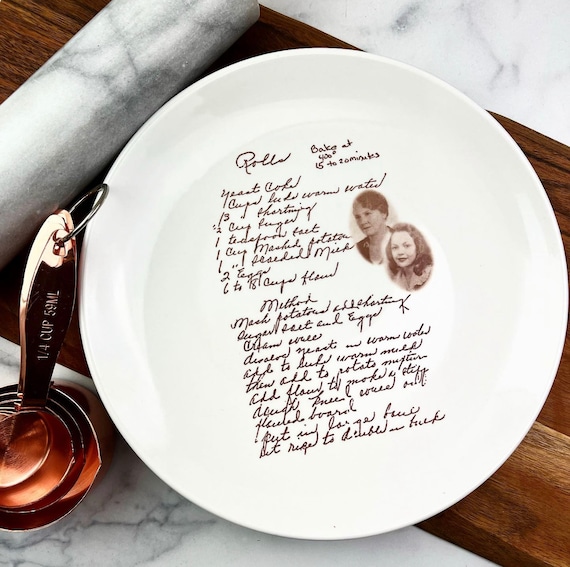 Rolls
Bake at
400°
15 to 20 minutes
Yeast Cake
1 Cups luke warm water
2/3 " shortning
2/3 Cup Sugar
1 teaspoon salt
1 Cup Mashed potatoes
1 " Scalded Milk
2 Eggs
6 to 8 Cups flour
Method
Mash potatoes add shorting
Sugar Salt and Eggs
Cream well
disolve yeast in warm water
add to luke warm milk
then add to potato mixture
add flour to make a stiff
dough kneed well on
floured board
Put in large bowl
let rise to double in bulk
1/4 CUP 59ML